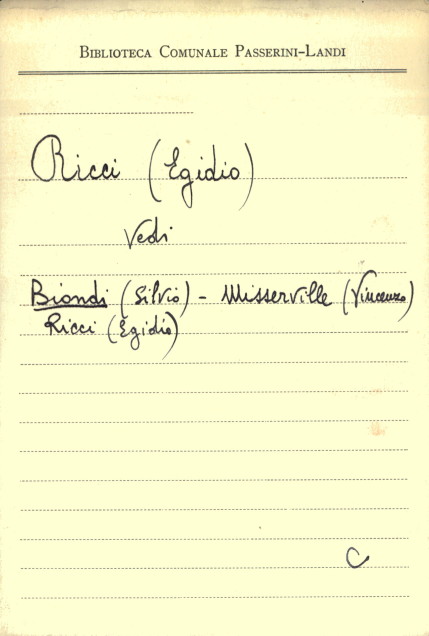 BIBLIOTECA COMUNALE PASSERINI-LANDI
Ricci (Egidio)
Vedi
Biondi (Silvio) - Misserville (Vincenzo)
Ricci (Egidio)
C